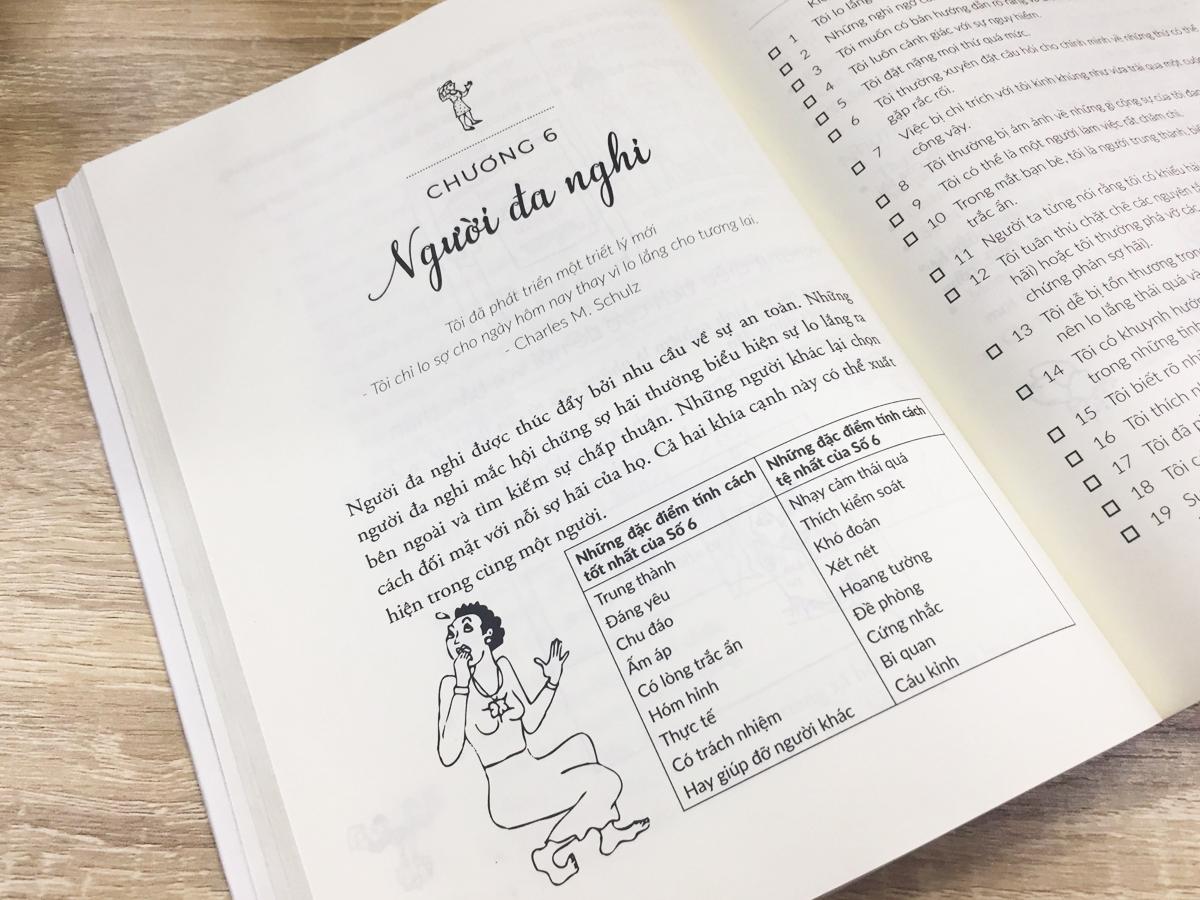 CHƯƠNG 6
Người đa nghi
Tôi đã phát triển một triết lý mới
- Tôi chỉ lo sợ cho ngày hôm nay thay vì lo lắng cho tương lai.
- Charles M. Schulz
Người đa nghi được thúc đẩy bởi nhu cầu về sự an toàn. Những
người đa nghi mắc hội chứng sợ hãi thường biểu hiện sự lo lắng ra
bên ngoài và tìm kiếm sự chấp thuận. Những người khác lại chọn
cách đối mặt với nỗi sợ hãi của họ. Cả hai khía cạnh này có thể xuất
hiện trong cùng một người.
Những đặc điểm tính cách
tốt nhất của Số 6
Trung thành
Đáng yêu
Chu đáo
Ấm áp
Có lòng trắc ẩn
Hóm hỉnh
Thực tế
Có trách nhiệm
Hay giúp đỡ người khác
Những đặc điểm tính cách
tệ nhất của Số 6
Nhạy cảm thái quá
Thích kiểm soát
Khó đoán
Xét nét
Hoang tưởng
Đề phòng
Cứng nhắc
Bi quan
Cáu kỉnh
1 Tôi lo lắng
2 Những nghi ngờ
3 Tôi muốn có bản hướng dẫn rõ ràng
4 Tôi luôn cảnh giác với sự nguy hiểm.
5 Tôi đặt nặng mọi thứ quá mức.
6 Tôi thường xuyên đặt câu hỏi cho chính mình về những thứ có thể
gặp rắc rối.
7 Việc bị chỉ trích với tôi kinh khủng như vừa trải qua một cuộc
công vậy.
8 Tôi thường bị ám ảnh về những gì cộng sự của tôi đang
9 Tôi có thể là một người làm việc rất chăm chỉ.
10 Trong mắt bạn bè, tôi là người trung thành,
trắc ẩn.
11 Người ta từng nói rằng tôi có khiếu hài
12 Tôi tuân thủ chặt chẽ các nguyên
hãi) hoặc tôi thường phá vỡ các
chứng phản sợ hãi).
13 Tôi dễ bị tổn thương trong
nên lo lắng thái quá và
14 Tôi có khuynh hướng
trong những tình
15 Tôi biết rõ
16 Tôi thích
17 Tôi đã
18 Tôi
19